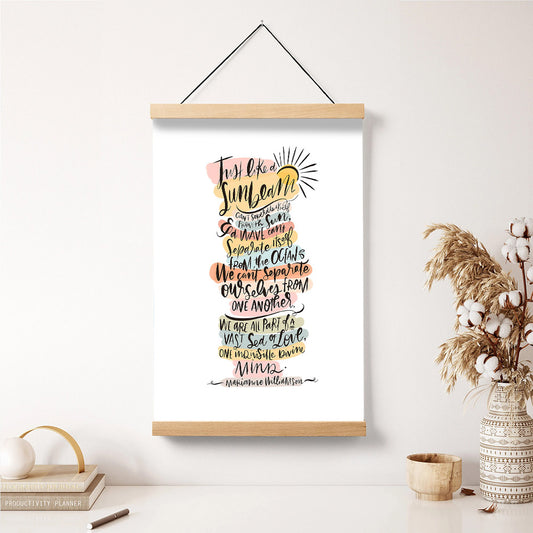 Just like a
Sunbeam
can't separate itself
from the Sun,
& a WAVE can't
Separate itself
FROM the OCEAN
We can't separate
ourselves FROM
ONE ANOTHER.
WE ARE ALL PART of a
VAST Sea of Love,
ONE indivisible Divine
MIND.
Marianne Williamson
PRODUCTIVITY PLANNER